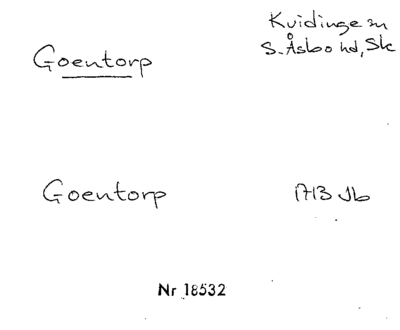 Kvidinge sn
Goentorp
S. Åsbo hd, Sk
Goentorp
1713 Jb
Nr 18532